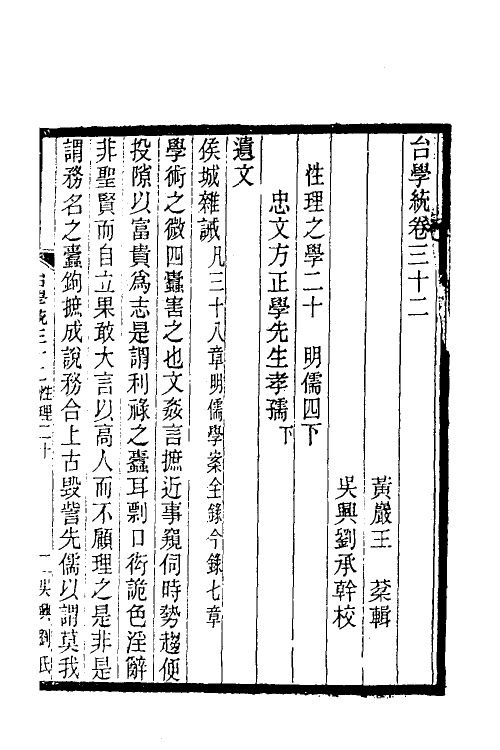 台學統卷三十二
黃巖王棻輯
吳興劉承幹校
性理之學二十 明儒四下
忠文方正學先生孝孺下
遺文
侯城雜誡凡三十八章明儒學案全錄今錄七章
學術之微四蠹害之也文姦言摭近事窺伺時勢趨便
投隙以富貴爲志是謂利祿之蠹耳剽口衒詭色淫辭
非聖賢而自立果敢大言以高人而不顧理之是非是
謂務名之蠹鉤摭成說務合上古毀訾先儒以謂莫我
台學統三十二 性理二十 一 吳興劉氏